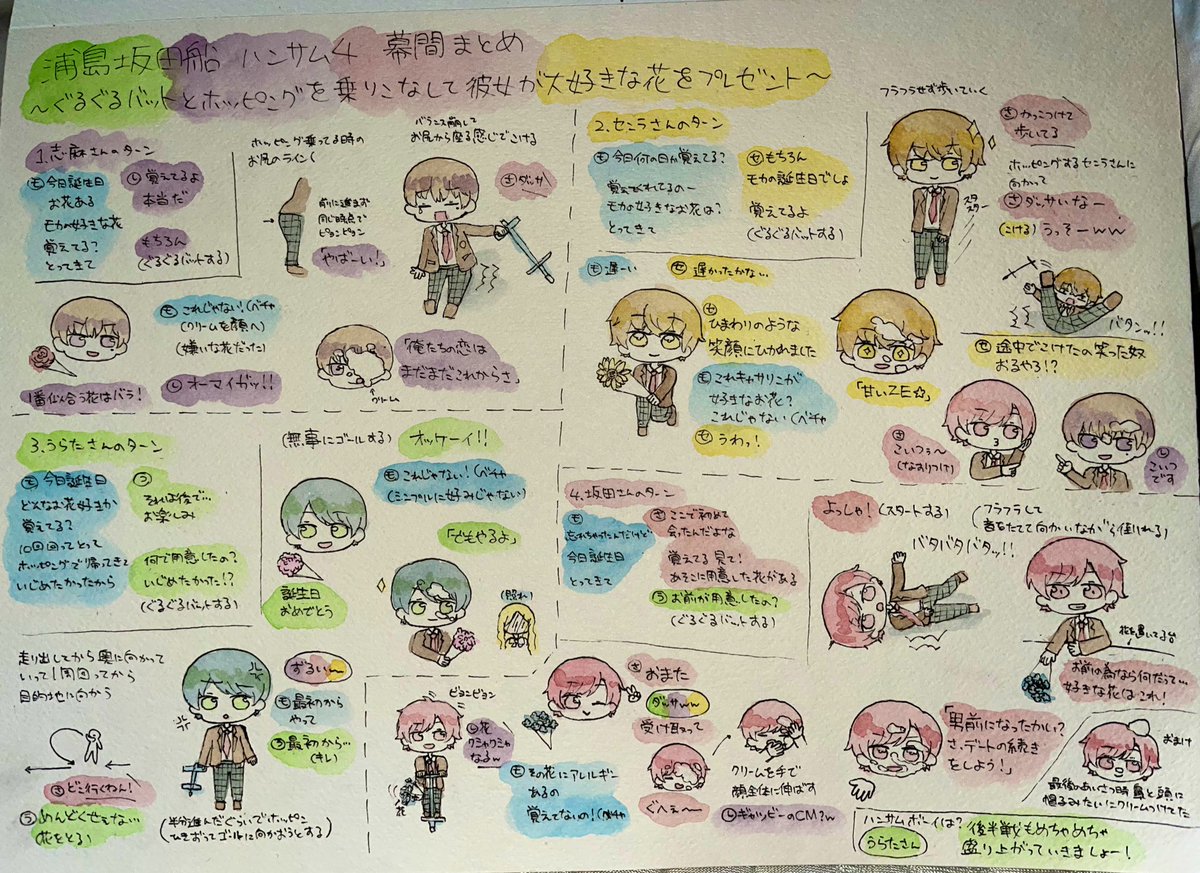 浦島坂田船 ハンサム4 幕間まとめ
〜ぐるぐるバットとホッピングを乗りこなして彼女が大好きな花をプレゼント〜
1.志麻さんのターン
も 今日誕生日
お花ある
モカが好きな花
覚えてる?
とってきて
し 覚えてるよ
本当だ
もちろん
(ぐるぐるバットする)
ホッピング乗ってる時の
お尻のライン(
前に進まず
同じ時点で
ピョンピョン
「やばーい!」
バランス崩して
お尻から座る感じでこける
さ ダッサ
も これじゃない!(ベチャ
(クリームを顔へ)
(嫌いな花だった)
1番似合う花はバラ!
し オーマイガッ!!
「俺たちの恋は
まだまだこれからさ」
クリーム
2.センラさんのターン
も 今日何の日か覚えてる?
覚えてくれてるのー
モカの好きなお花は?
とってきて
せ もちろん
モカの誕生日でしょ
覚えてるよ
(ぐるぐるバットする)
フラフラせず歩いていく
スタスター
さ かっこつけて
歩いてる
ホッピングするセンラさんに
向かって
さ ダッサいなー
(こける) うっそーww
バタンッ!!
も 遅ーい
せ 遅かったかな…
せ ひまわりのような
笑顔にひかれました
も これキャサリンが
好きなお花?
これじゃない(ベチャ
せ うわっ!
「甘いZE☆」
せ 途中でこけたの笑った奴
おるやろ!?
さ こいつぅ〜
(なすりつけ)
し こいつ
です
3.うらたさんのターン
も 今日誕生日
どんなお花好きか
覚えてる?
10回回ってとって
ホッピングで帰ってきて
いじめたかったから
う それは後で…
お楽しみ
何で用意したの?
いじめたかった!?
(ぐるぐるバットする)
(無事にゴールする) オッケーイ!!
も これじゃない!(ベチャ
(ミニブルに好みじゃない)
誕生日
おめでとう
「でもやるよ」
(照れ)
走り出してから奥に向かって
いって1周回ってから
目的地に向かう
さ どこ行くねん!
う めんどくせぇな…
花をとる)
ずるい〜
も 最初から
やって
う 最初から…
(キレ)
(半分進んだぐらいでホッピン
ひきおってゴールに向かおうとする)
4.坂田さんのターン
も 忘れちゃったんだけど
今日誕生日
とってきて
さ ここで初めて
会ったんだよな
覚えてる 見て!
あそこに用意した花がある
う お前が用意したの?
(ぐるぐるバットする)
よっしゃ! (スタートする)
(フラフラして
音をたてて向かいながら倒れる)
バタバタバタッ!!
花を置いてる台
お前の為なら何だって…
好きな花はこれ!
ピョンピョン
し 花
クシャクシャ
なるw
さ おまた
ダッサww
受け取って
も その花にアレルギー
あるの
覚えてないの!(ベチャ
ぐへぇ〜
クリームを手で
顔全体に伸ばす
し ギャツビーのCM?w
「男前になったかい?
さ、デートの続き
をしよう!」
おまけ
最後のあいさつ時 鼻と頭に
帽子みたいにクリームつけてた
ハンサムボーイは?
うらたさん
後半戦もめちゃめちゃ
盛り上がっていきましょー!